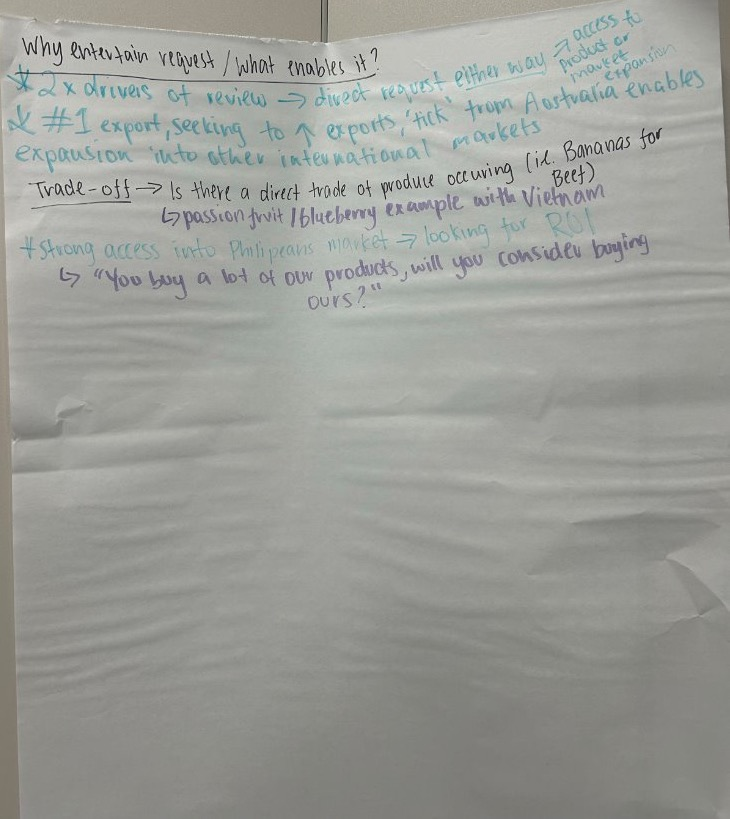 Why entertain request / What enables it?
* 2x drivers of review → direct request either way → access to
product or
market
expansion
* #1 export, seeking to ↑ exports, 'tick' from Australia enables
expansion into other international markets
Trade-off → Is there a direct trade of produce occuring (i.e. Bananas for
Beef)
↳ passionfruit / blueberry example with Vietnam
* Strong access into Philipeans market → looking for ROI
↳ "You buy a lot of our products, will you consider buying
ours?"